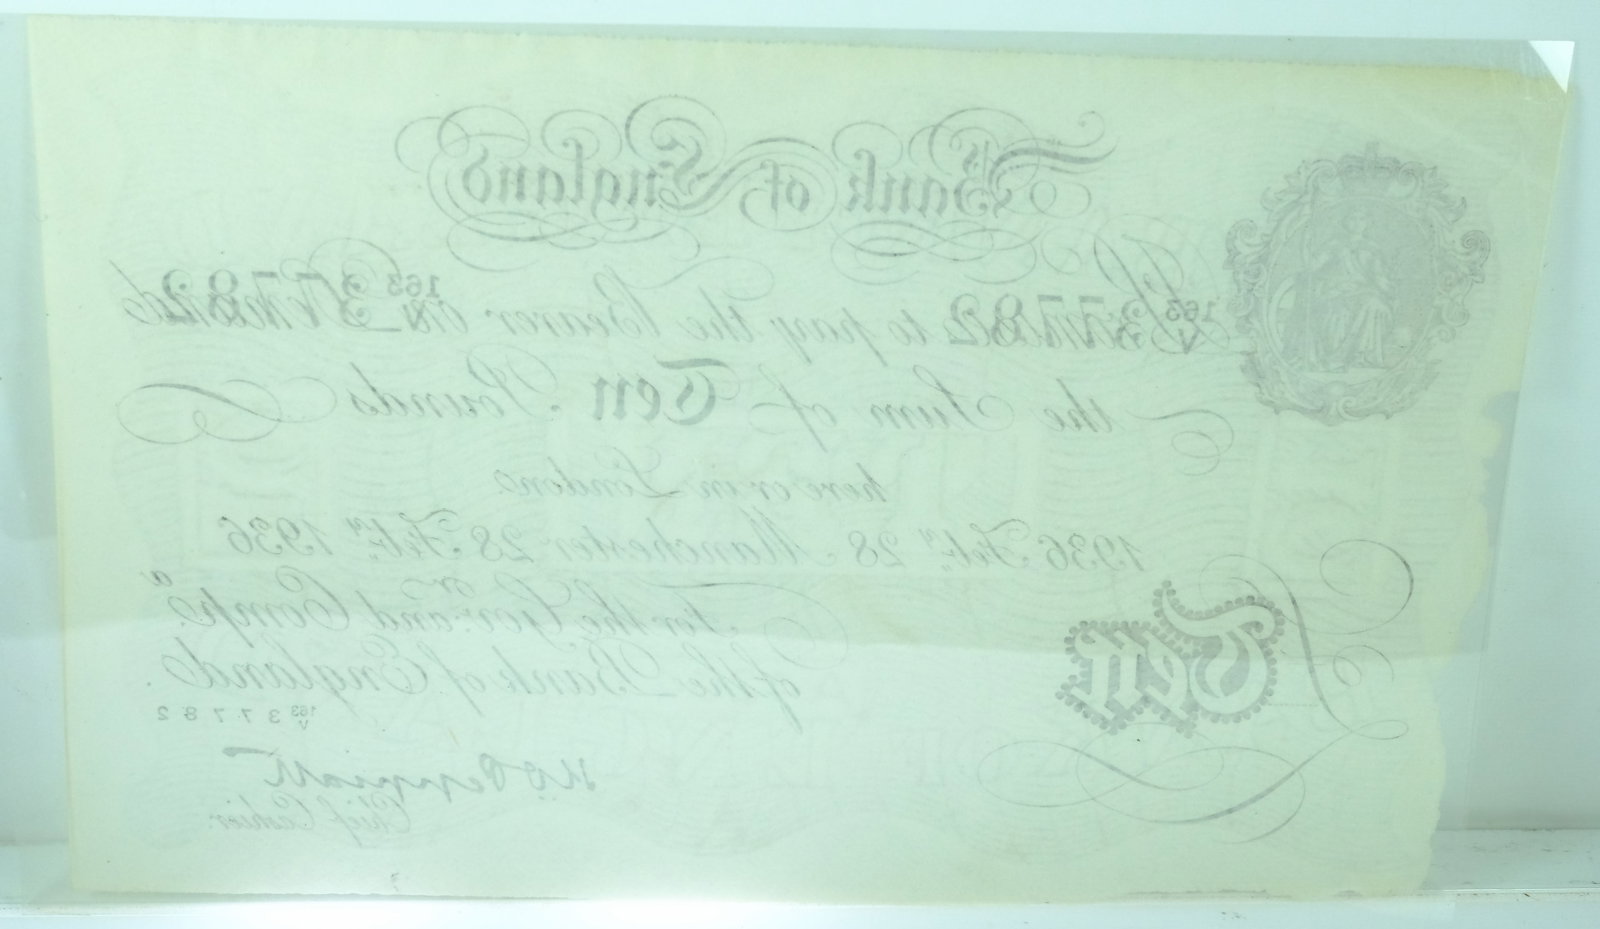 Bank of England
163 V 37782 to pay the Bearer on 163 V 37782
the Sum of Ten Pounds
here or in London
1936 Feby. 28 Manchester 28 Feby. 1936
For the Govr. and Compa.
of the Bank of England.
163 V 37782
Ten
K.O. Peppiatt
Chief Cashier.